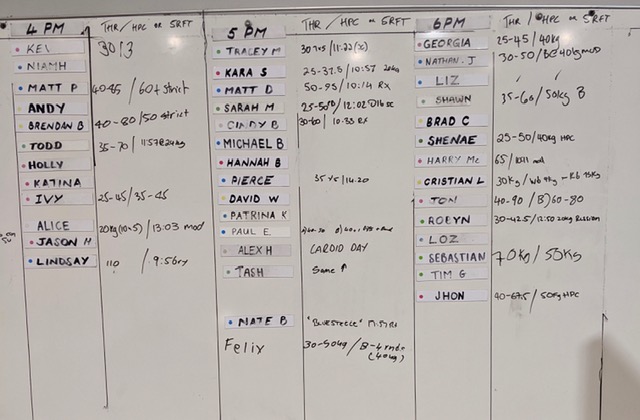 4 PM THR/HPC OR 5RFT
KEV 30/3
NIAMH
MATT P 40-85 / 60+ strict
ANDY
BRENDAN B 40-80/50 strict
TODD 35-70 / 11:57@24kg
HOLLY
KATINA
IVY 25-45/35-45
ALICE 20kg(10x5) / 13:03 mod
JASON H
LINDSAY 110 / 9:56ry
5 PM THR/HPC OR 5RFT
TRACEY M
KARA S 25-37.5 / 10:57 20kg
MATT D 50-95 / 10:14 Rx
SARAH M 25-50 / 12:02
CINDY B 30-60 / 10:33 RX
MICHAEL B
HANNAH B
PIERCE 35x5 / 14:20
DAVID W
PATRINA K
PAUL E.
ALEX H CARDIO DAY
TASH Same ↑
NATE B "BLUESTEELE"
Felix 30-50kg / B-4 rnds
(40kg)
6PM THR/HPC OR 5RFT
GEORGIA 25-45/40kg
NATHAN. J 30-50/
LIZ
SHAWN 35-60/50kg B
BRAD C
SHENAE 25-50/40kg HPC
HARRY Mc 65/
CRISTIAN L 30kg/
TONI 40-90 / B) 60-80
ROBYN 30-42.5 / 12:50 20kg Russian
LOZ
SEBASTIAN 70kg/55kg
TIM G
JHON 40-67.5 / 50kg HPC